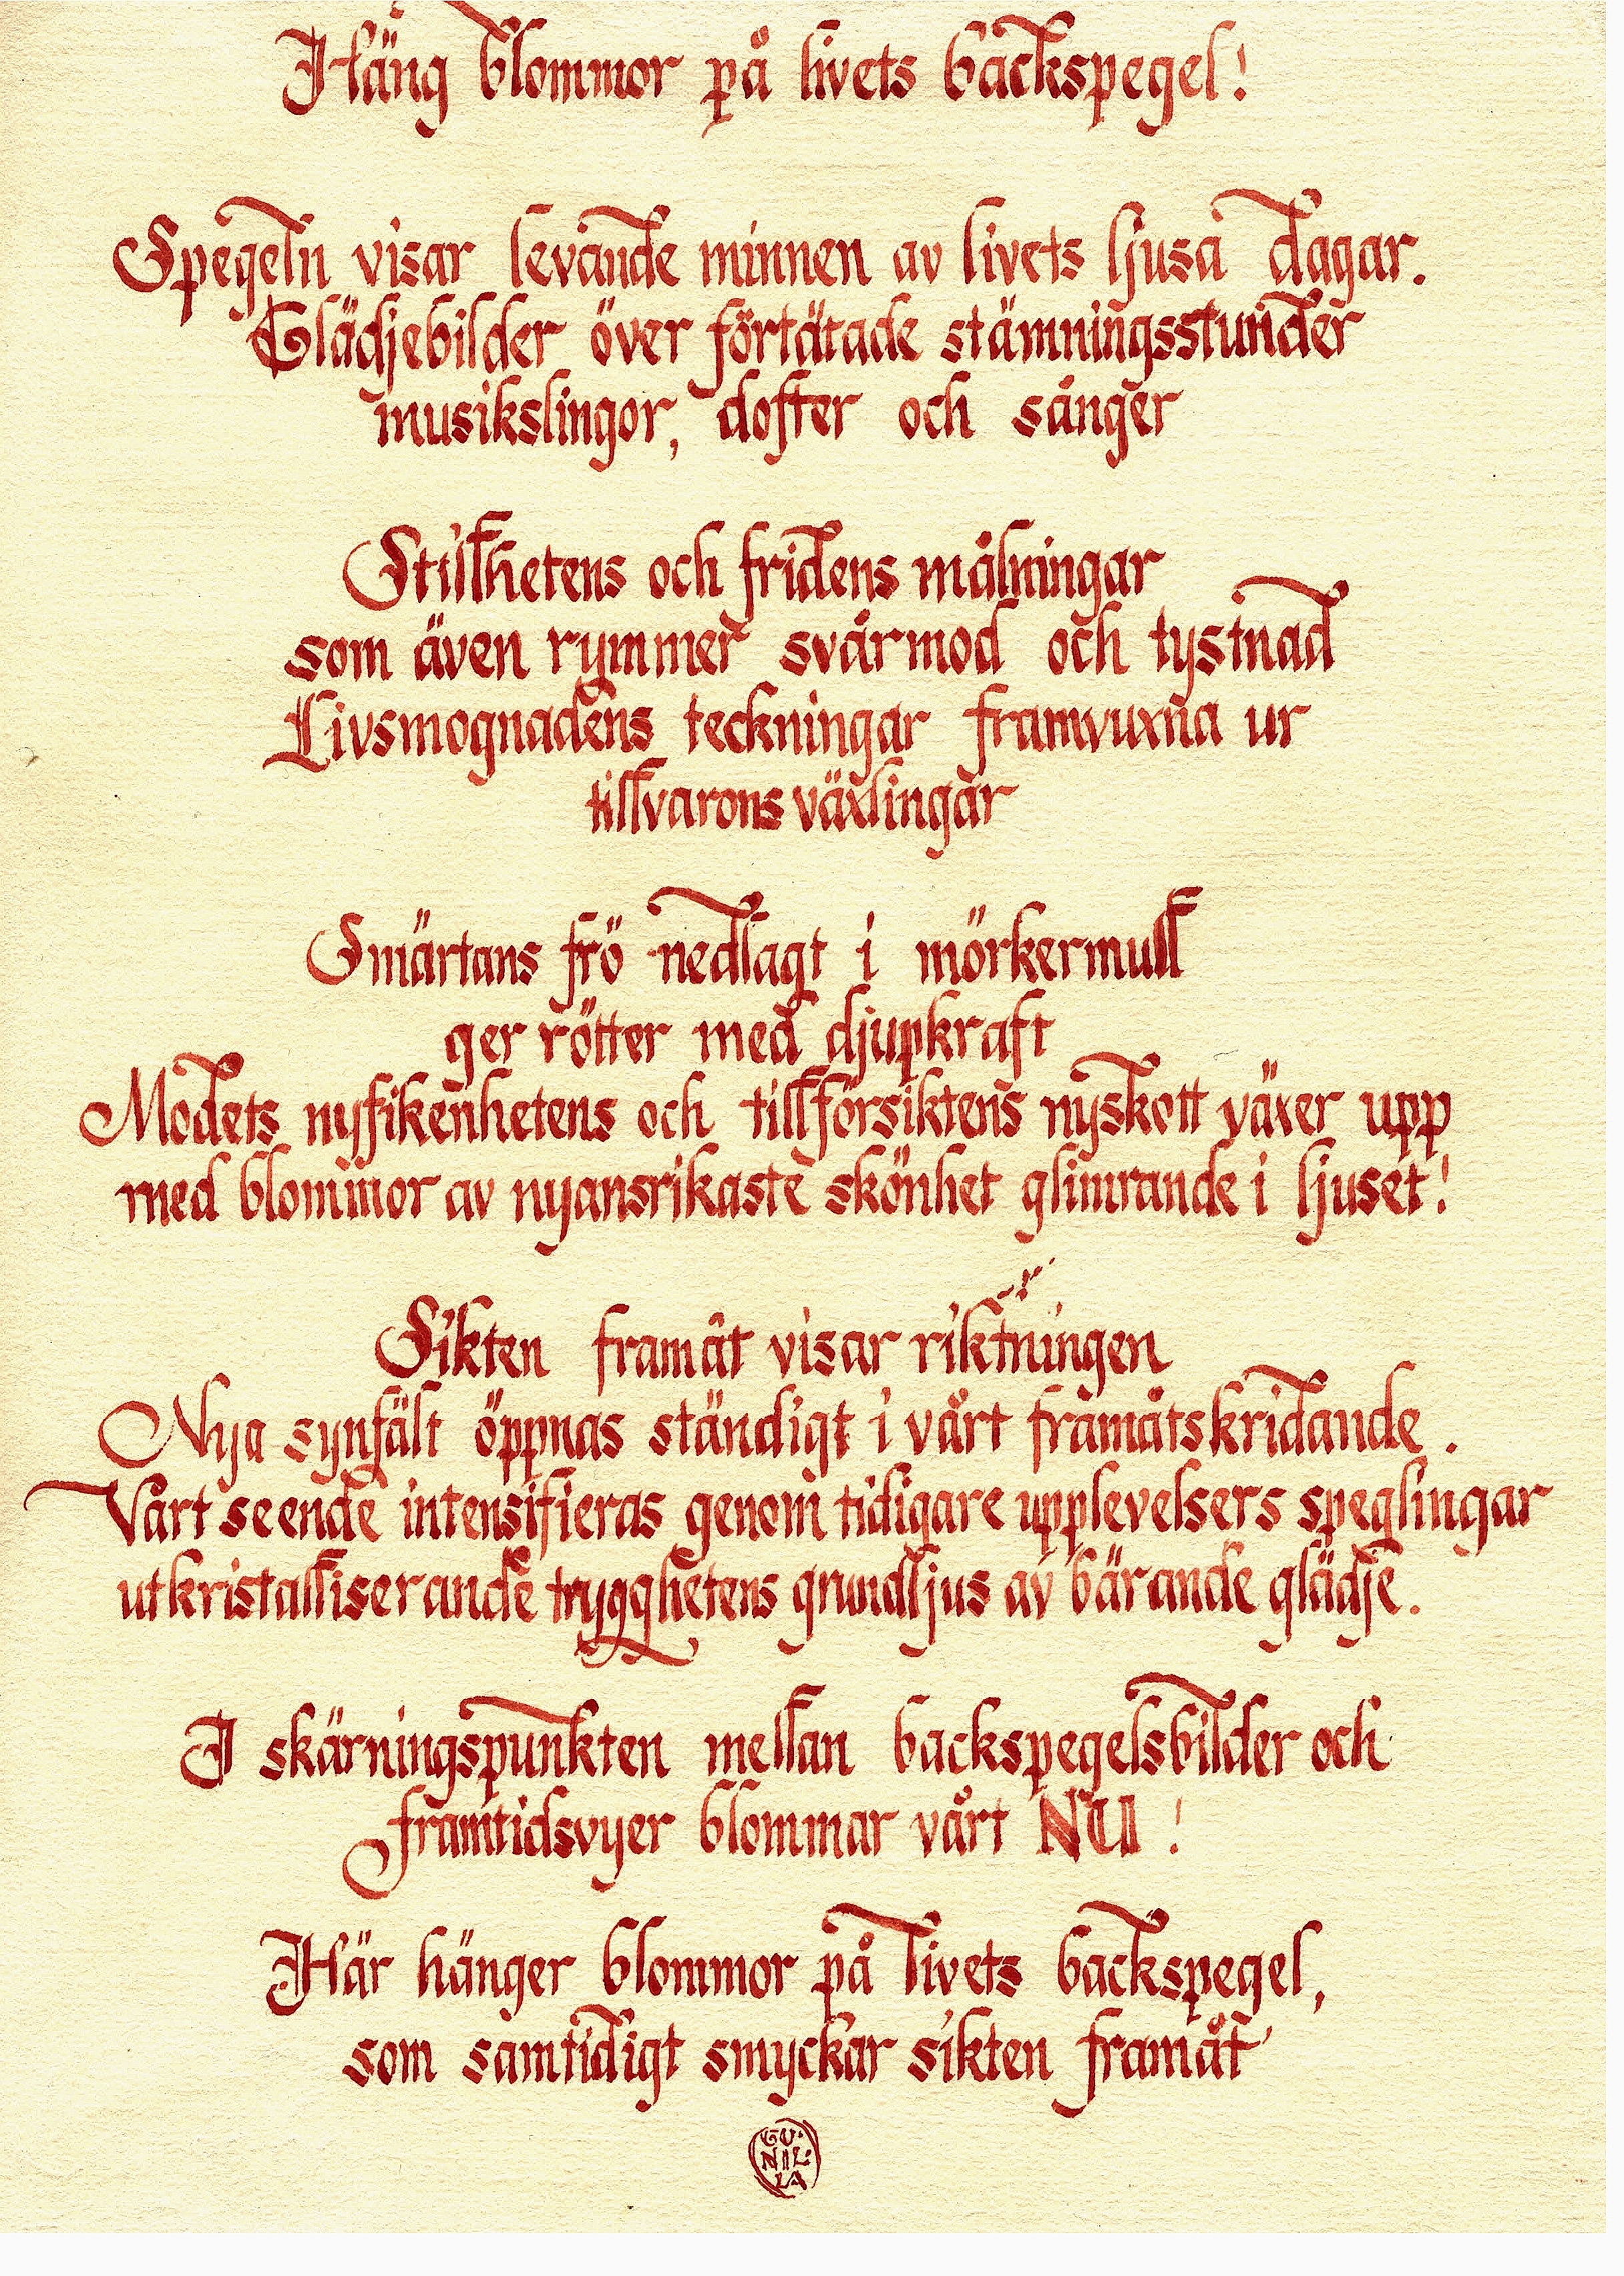 Häng blommor på livets backspegel!
Spegeln visar levande minnen av livets ljusa dagar.
Glädjebilder över förtätade stämningsstunder
musikslingor, dofter och sånger
Stillhetens och fridens målningar
som även rymmer svårmod och tystnad
Livsmognadens teckningar framvuxna ur
tillvarons växlingar
Smärtans frö nedlagt i mörkermull
ger rötter med djupkraft
Modets nyfikenhetens och tillförsiktens nyskott växer upp
med blommor av nyansrikaste skönhet glimrande i ljuset!
Sikten framåt visar riktningen
Nya synfält öppnas ständigt i vårt framåtskridande.
Vårt seende intensifieras genom tidigare upplevelsers speglingar
utkristalliserande trygghetens grundljus av bärande glädje.
I skärningspunkten mellan backspegelsbilder och
framtidsvyer blommar vårt NU!
Här hänger blommor på livets backspegel,
som samtidigt smyckar sikten framåt
GU-
NIL-
LA